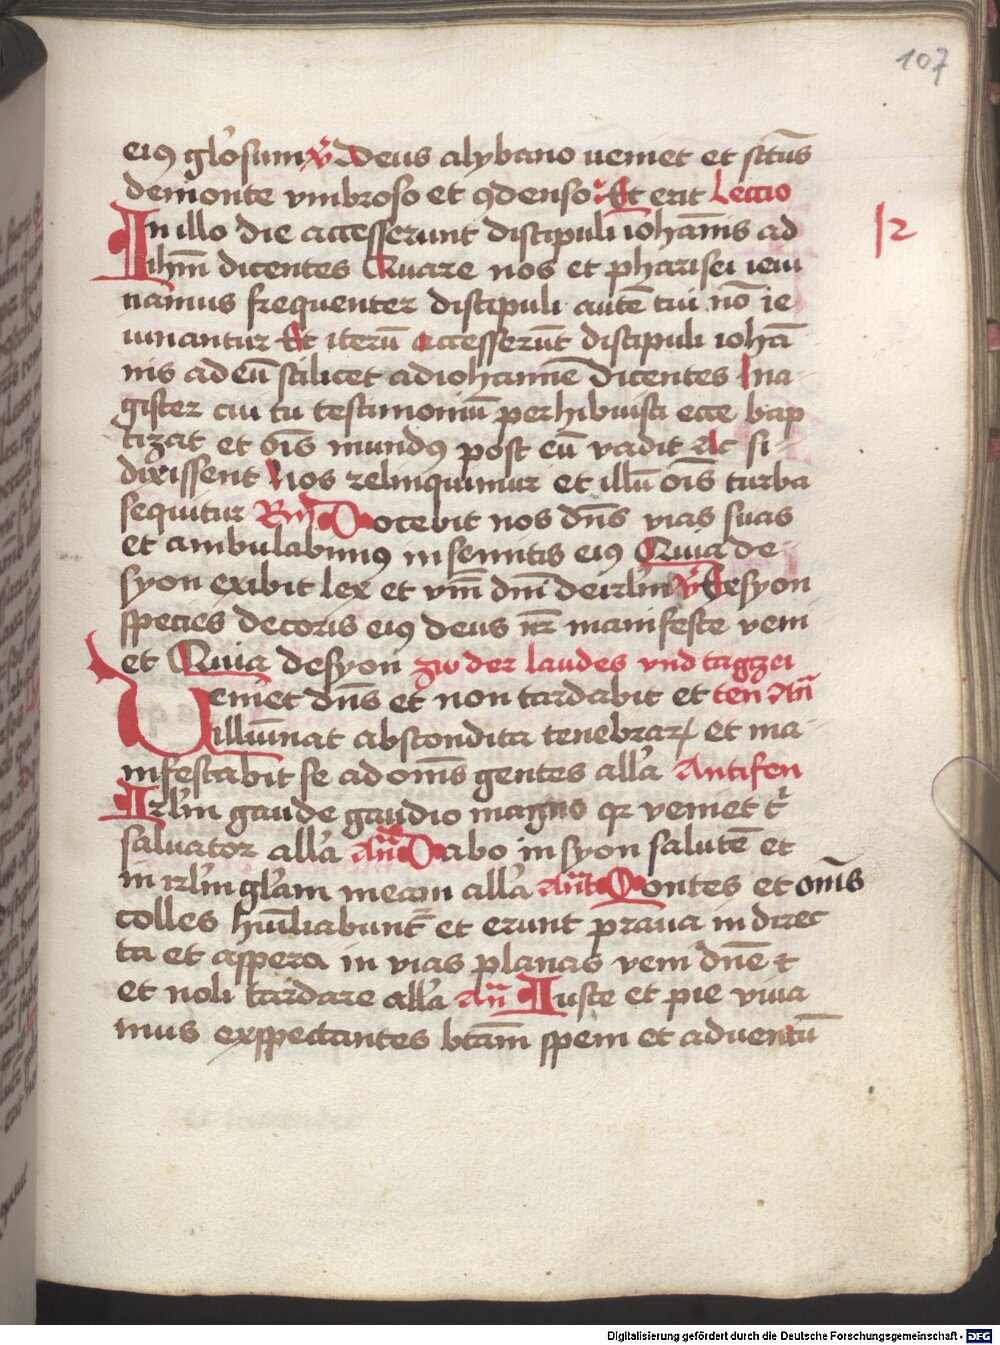 107
eiꝯ gl'osum v̓ Deus alybano ueniet et sctūs
demonte vmbroso et ꝯdenso Et erit Lectio
In illo die accesserunt discipuli iohānis ad
ihm̄ dicentes Quare nos et pharisei ieiu
namus frequenter discipuli autē tui nō ie
iunantur Et iterū accesserūt discipuli iohā
nis ad eū scilicet adiohannē dicentes Ma
gister cui tu testimoniū perhibuisti ecce bap
tizat et oīs mundꝯ post eū vadit Ac si
dixissent Nos relinquimur et illū oīs turba
sequitur Rm̄ Docebit nos dn̄s vias suas
et ambulabimꝯ in semitis eiꝯ Quia de
syon exibit lex et vm̄ dm̄ deirl'm v̓ Exsyon
species decoris eiꝯ deus nr̄ manifeste veni
et Quia desyon zw der laudes vnd tagzei
Ueniet dn̄s et non tardabit et ten An̄
illūinat abscondita tenebrarꝝ et ma
nifestabit se ad om̄s gentes all'a Antifen
Irl'm gaude gaudio magno qr veniet t'
saluator all'a An̄ Dabo in syon salutē et
in irl'm gl'am meam all'a Ant Montes et om̄s
colles hūiliabunt' et erunt praua in direc
ta et aspera in vias planas veni dn̄e ⁊
et noli tardare all'a An̄ Iuste et pie viua
mus exspectantes btām spem et aduentū
12
Digitalisierung gefördert durch die Deutsche Forschungsgemeinschaft - DFG